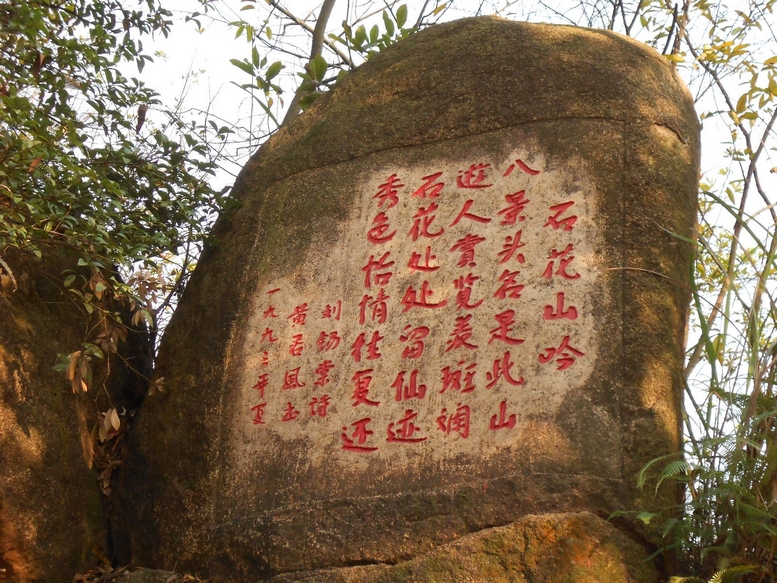 石花山吟
八景头名是此山
遊人賞览羡斑斓
石花处处留仙迹
秀色怡情往复还
刘锡棠诗
黄君風书
一九九三年夏